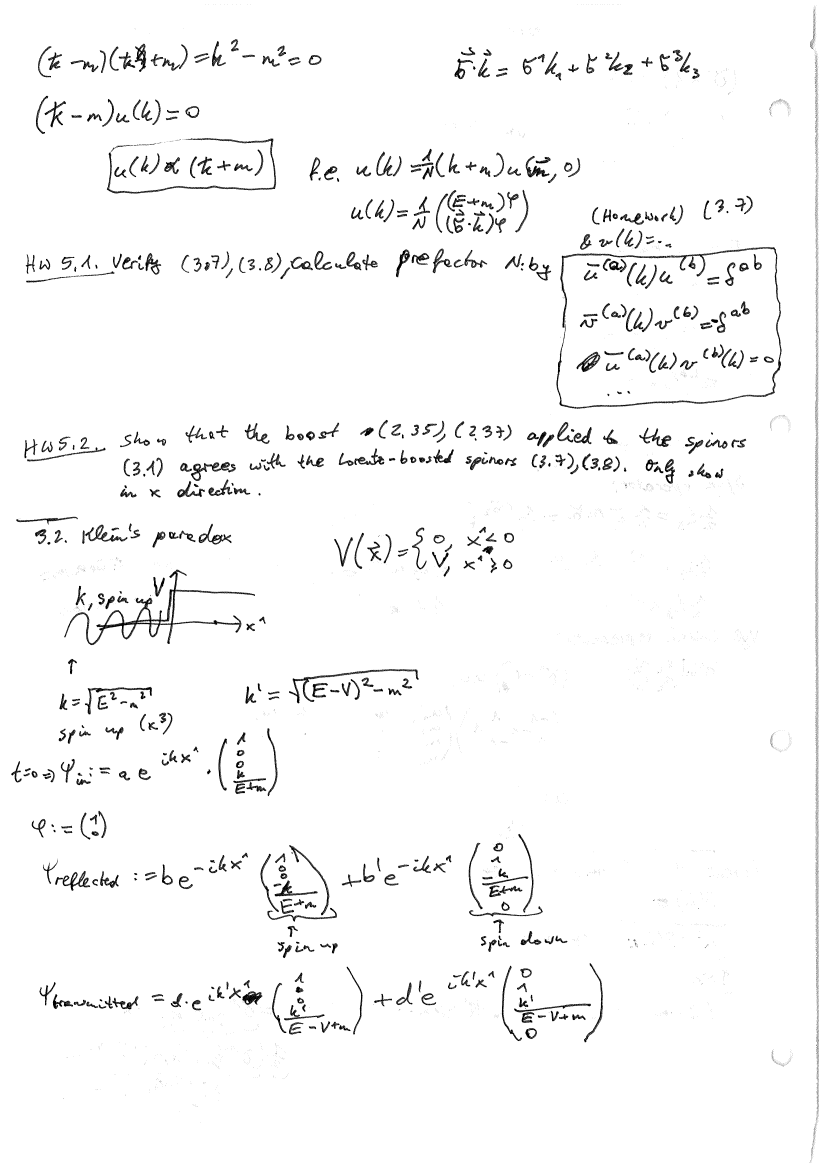 (k̸ - m)(k̸ + m) = k² - m² = 0    σ⃗·k⃗ = σ¹k₁ + σ²k₂ + σ³k₃
(k̸ - m)u(k) = 0
u(k) ∝ (k̸ + m)    f.e. u(k) = 1/N (k̸ + m) u(m, 0)
u(k) = 1/N ((E+m)φ / (σ⃗·k⃗)φ)    (Homework) (3.7)
& v(k) = ...
HW 5.1. Verify (3.7), (3.8), calculate prefactor N: by
ū⁽ᵃ⁾(k) u⁽ᵇ⁾ = δᵃᵇ
v̄⁽ᵃ⁾(k) v⁽ᵇ⁾ = -δᵃᵇ
ū⁽ᵃ⁾(k) v⁽ᵇ⁾(k) = 0
...
HW 5.2. Show that the boost (2.35), (2.37) applied to the spinors
(3.1) agrees with the Lorentz-boosted spinors (3.7), (3.8). Only show
in x direction.
3.2. Klein's paradox    V(x⃗) = { 0, x¹ < 0
V, x¹ ≥ 0
k, spin up V
x¹
↑
k = √(E² - m²)    k' = √((E-V)² - m²)
spin up (x³)
t=0 ⇒ ψ_in := a e^{ikx¹} · (1, 0, 0, k/(E+m))
φ := (1, 0)
ψ_reflected := b e^{-ikx¹} (1, 0, 0, -k/(E+m)) + b' e^{-ikx¹} (0, 1, -k/(E+m), 0)
↑ ↑
spin up    spin down
ψ_transmitted = d · e^{ik'x¹} (1, 0, 0, k'/(E-V+m)) + d' e^{ik'x¹} (0, 1, k'/(E-V+m), 0)